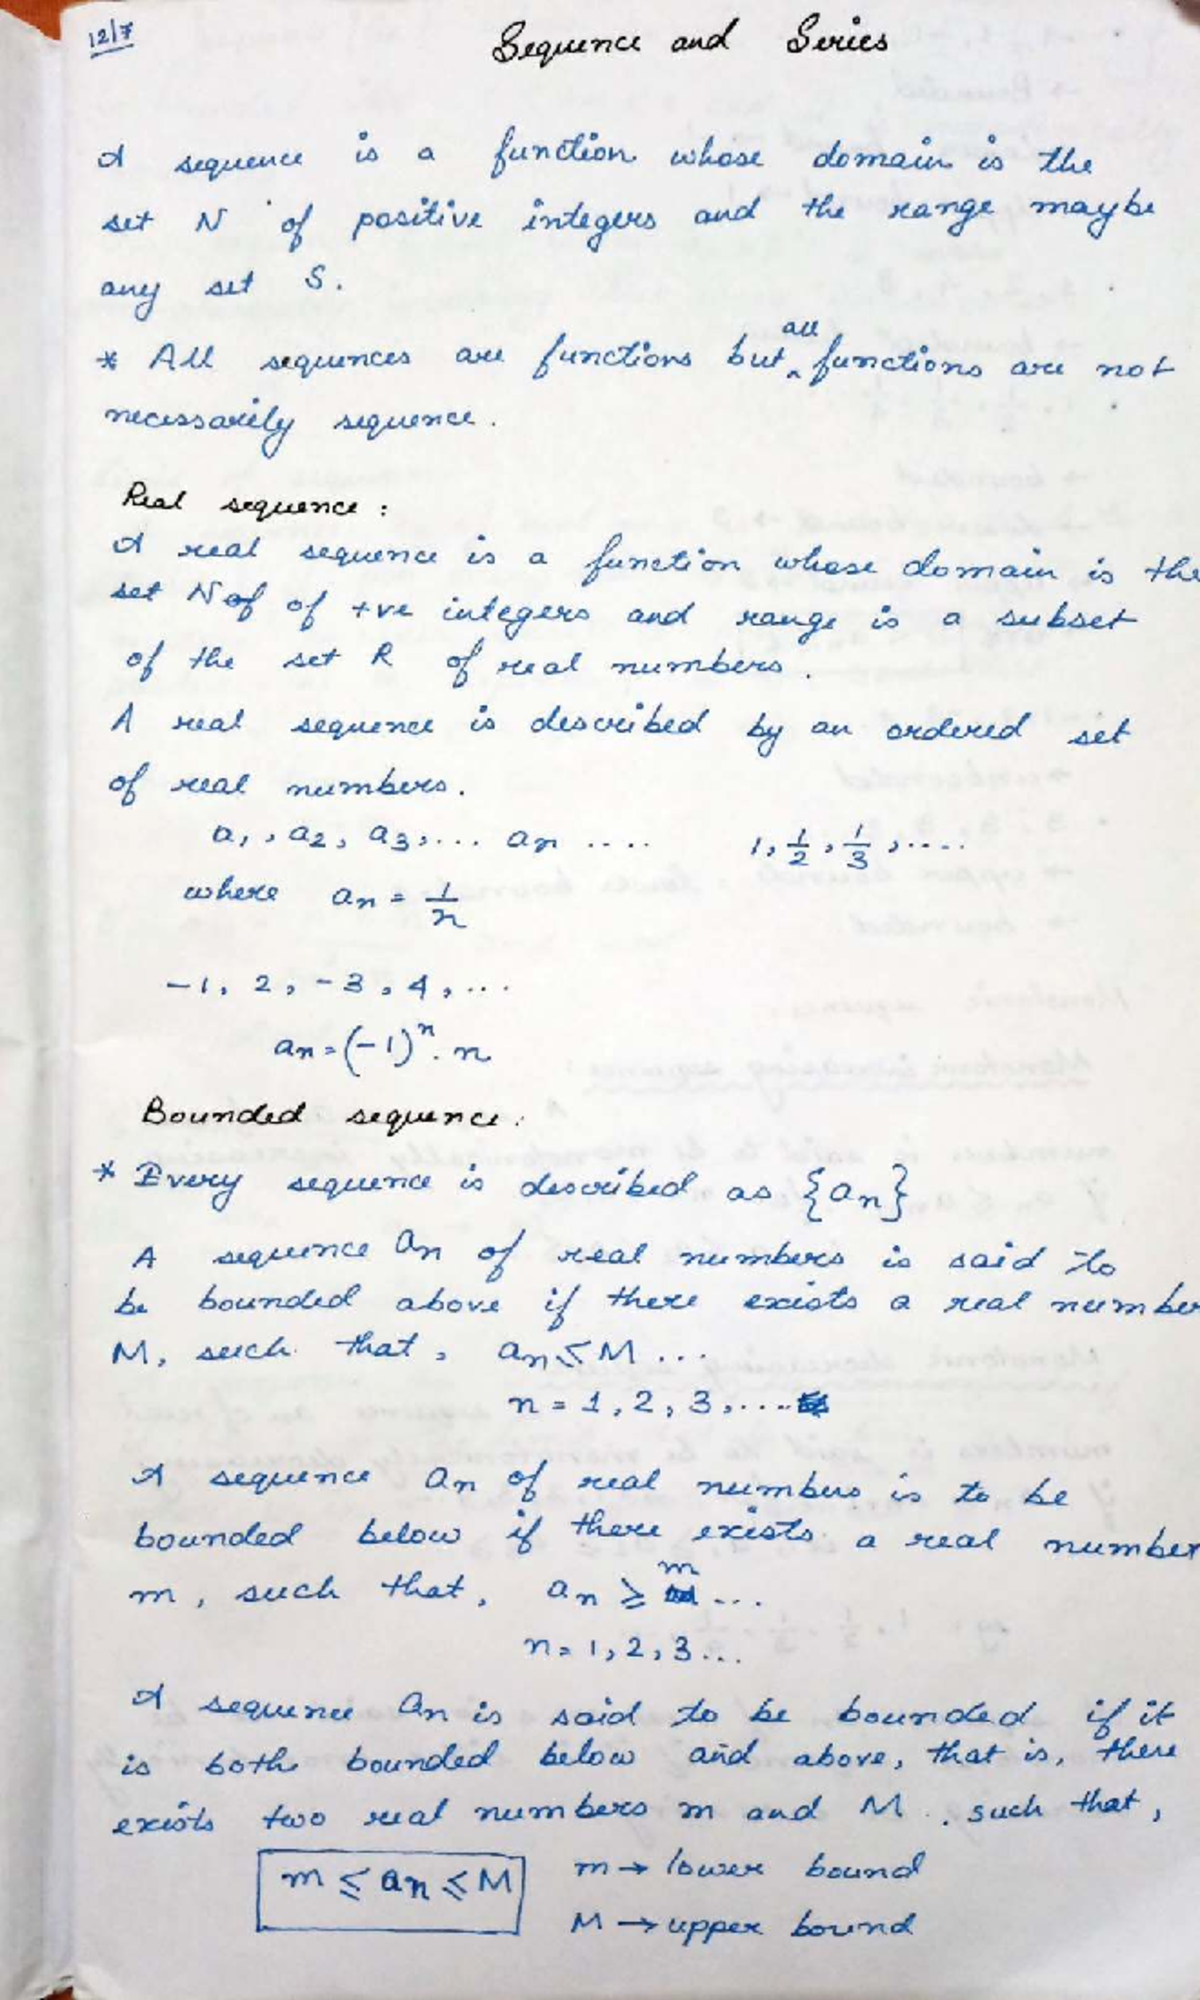 12/7
Sequence and Series
A sequence is a function whose domain is the
set N of positive integers and the range maybe
any set S.
* All sequences are functions but all functions are not
necessarily sequence.
Real sequence :
A real sequence is a function whose domain is the
set N of of +ve integers and range is a subset
of the set R of real numbers.
A real sequence is described by an ordered set
of real numbers.
a₁, a₂, a₃, ... aₙ .... 1, 1/2, 1/3, ....
where aₙ = 1/n
-1, 2, -3, 4, ...
aₙ = (-1)ⁿ. n
Bounded sequence.
* Every sequence is described as {aₙ}
A sequence aₙ of real numbers is said to
be bounded above if there exists a real number
M, such that, aₙ ≤ M ...
n = 1, 2, 3, ....
A sequence aₙ of real numbers is to be
bounded below if there exists a real number
m, such that, aₙ ≥ m ...
n = 1, 2, 3...
A sequence aₙ is said to be bounded if it
is both bounded below and above, that is, there
exists two real numbers m and M, such that,
m ≤ aₙ ≤ M m → lower bound
M → upper bound